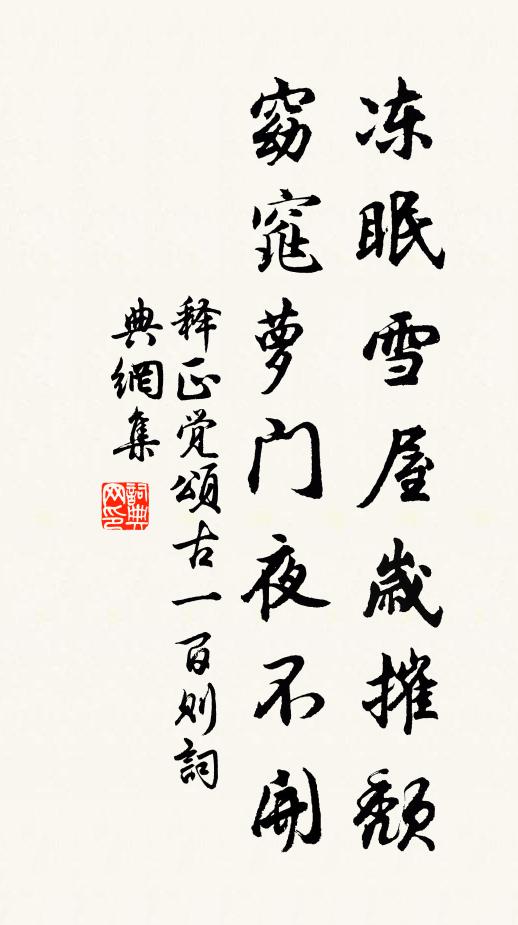 冻眠雪屋岁摧颓
窈窕萝门夜不开
释正觉颂古一百则詞
典網集
詞典网印